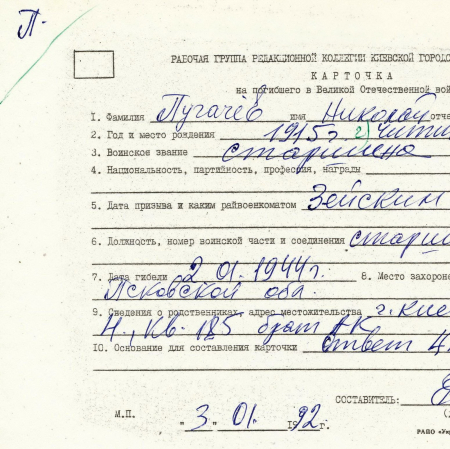 П.
РАБОЧАЯ ГРУППА РЕДАКЦИОННОЙ КОЛЛЕГИИ КИЕВСКОЙ ГОРОДС
КАРТОЧКА
на погибшего в Великой Отечественной вой
1. Фамилия Пугачёв имя Николай отче
2. Год и место рождения 1915г. г. Чити
3. Воинское звание старшина
4. Национальность, партийность, профессия, награды
5. Дата призыва и каким райвоенкоматом Зейским
6. Должность, номер воинской части и соединения старши
7. Дата гибели 2.01.1944г. 8. Место захороне
Псковской обл.
9. Сведения о родственниках, адрес местожительства г. Кие
4, кв. 185 брат АК
10. Основание для составления карточки ответ
СОСТАВИТЕЛЬ:
М.П. "3" 01. 1992г.
РАПО «Укр